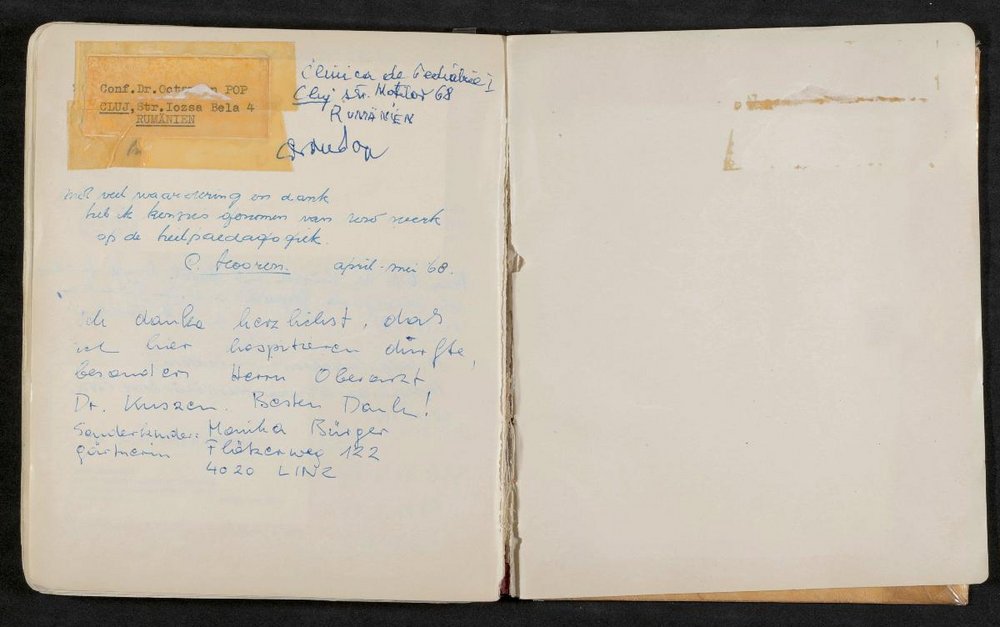 Conf.Dr.Oct POP
CLUJ,Str.Iozsa Bela 4
RUMÄNIEN
Clinica de Pediatrie I
Cluj str. Moților 68
RUMÄNIEN
met veel waardering en dank
heb ik kennis genomen van uw werk
op de heilpaedagogiek.
april-mei '68.
Ich danke herzlichst, daß
ich hier hospitieren durfte,
besonders Herrn Oberarzt
Dr. Kuszen. Besten Dank!
Sonderkinder- Monika Bürger
gärtnerin Flötzerweg 122
4020 LINZ